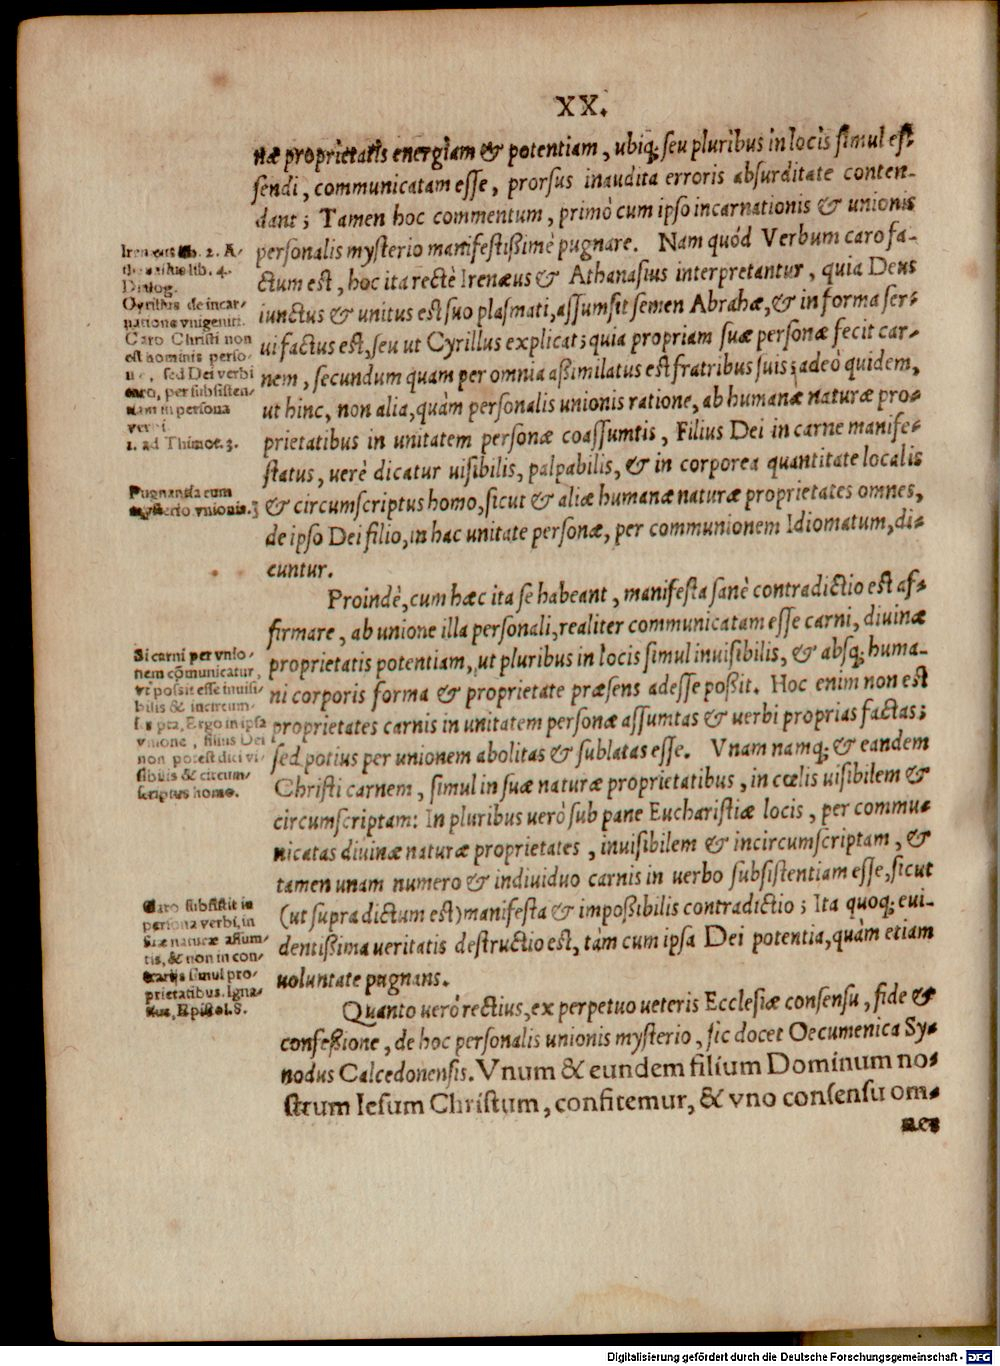 XX.
næ proprietatis energiam & potentiam, ubiq; seu pluribus in locis simul es-
sendi, communicatam esse, prorsus inaudita erroris absurditate conten-
dant; Tamen hoc commentum, primò cum ipso incarnationis & unionis
personalis mysterio manifestißimè pugnare. Nam quód Verbum caro fa-
ctum est, hoc ita rectè Irenæus & Athanasius interpretantur, quia Deus
iunctus & unitus est suo plasmati, assumsit semen Abrahæ, & in forma ser-
ui factus est, seu ut Cyrillus explicat; quia propriam suæ personæ fecit car-
nem, secundum quam per omnia aßimilatus est fratribus suis; adeò quidem,
ut hinc, non alia, quàm personalis unionis ratione, ab humanæ naturæ pro-
prietatibus in unitatem personæ coassumtis, Filius Dei in carne manife-
status, uerè dicatur uisibilis, palpabilis, & in corporea quantitate localis
& circumscriptus homo, sicut & aliæ humanæ naturæ proprietates omnes,
de ipso Dei filio, in hac unitate personæ, per communionem Idiomatum, di-
cuntur.
Irenæus lib. 2. A-
thanasius lib. 4.
Dialog.
Cyrillus de incar-
natione vnigeniti.
Caro Christi non
est hominis perso-
næ, sed Dei verbi
caro, per subsisten-
tiam in persona
verbi.
1. ad Thimot. 3.
Pugnantia cum
mysterio vnionis.
Proindè, cum hæc ita se habeant, manifesta sanè contradictio est af-
firmare, ab unione illa personali, realiter communicatam esse carni, diuinæ
proprietatis potentiam, ut pluribus in locis simul inuisibilis, & absq; huma-
ni corporis forma & proprietate præsens adesse poßit. Hoc enim non est
proprietates carnis in unitatem personæ assumtas & uerbi proprias factas;
sed potius per unionem abolitas & sublatas esse. Vnam namq; & eandem
Christi carnem, simul in suæ naturæ proprietatibus, in cœlis uisibilem &
circumscriptam: In pluribus uerò sub pane Eucharistiæ locis, per commu-
nicatas diuinæ naturæ proprietates, inuisibilem & incircumscriptam, &
tamen unam numero & indiuiduo carnis in uerbo subsistentiam esse, sicut
(ut supra dictum est) manifesta & impoßibilis contradictio; Ita quoq; eui-
dentißima ueritatis destructio est, tàm cum ipsa Dei potentia, quàm etiam
uoluntate pugnans.
Si carni per vnio-
nem cõmunicatur,
vt possit esse inuisi-
bilis & incircum-
scripta, Ergo in ipsa
vnione, filius Dei
non potest dici vi-
sibilis & circum-
scriptus homo.
Caro subsistit in
persona verbi, in
suæ naturæ assum-
tis, & non in con-
trarijs simul pro-
prietatibus. Igna-
tius, Epistol. 8.
Quanto uerò rectius, ex perpetuo ueteris Ecclesiæ consensu, fide &
confeßione, de hoc personalis unionis mysterio, sic docet Oecumenica Sy-
nodus Calcedonensis. Vnum & eundem filium Dominum no-
strum Iesum Christum, confitemur, & vno consensu om-
nes
Digitalisierung gefördert durch die Deutsche Forschungsgemeinschaft - DFG